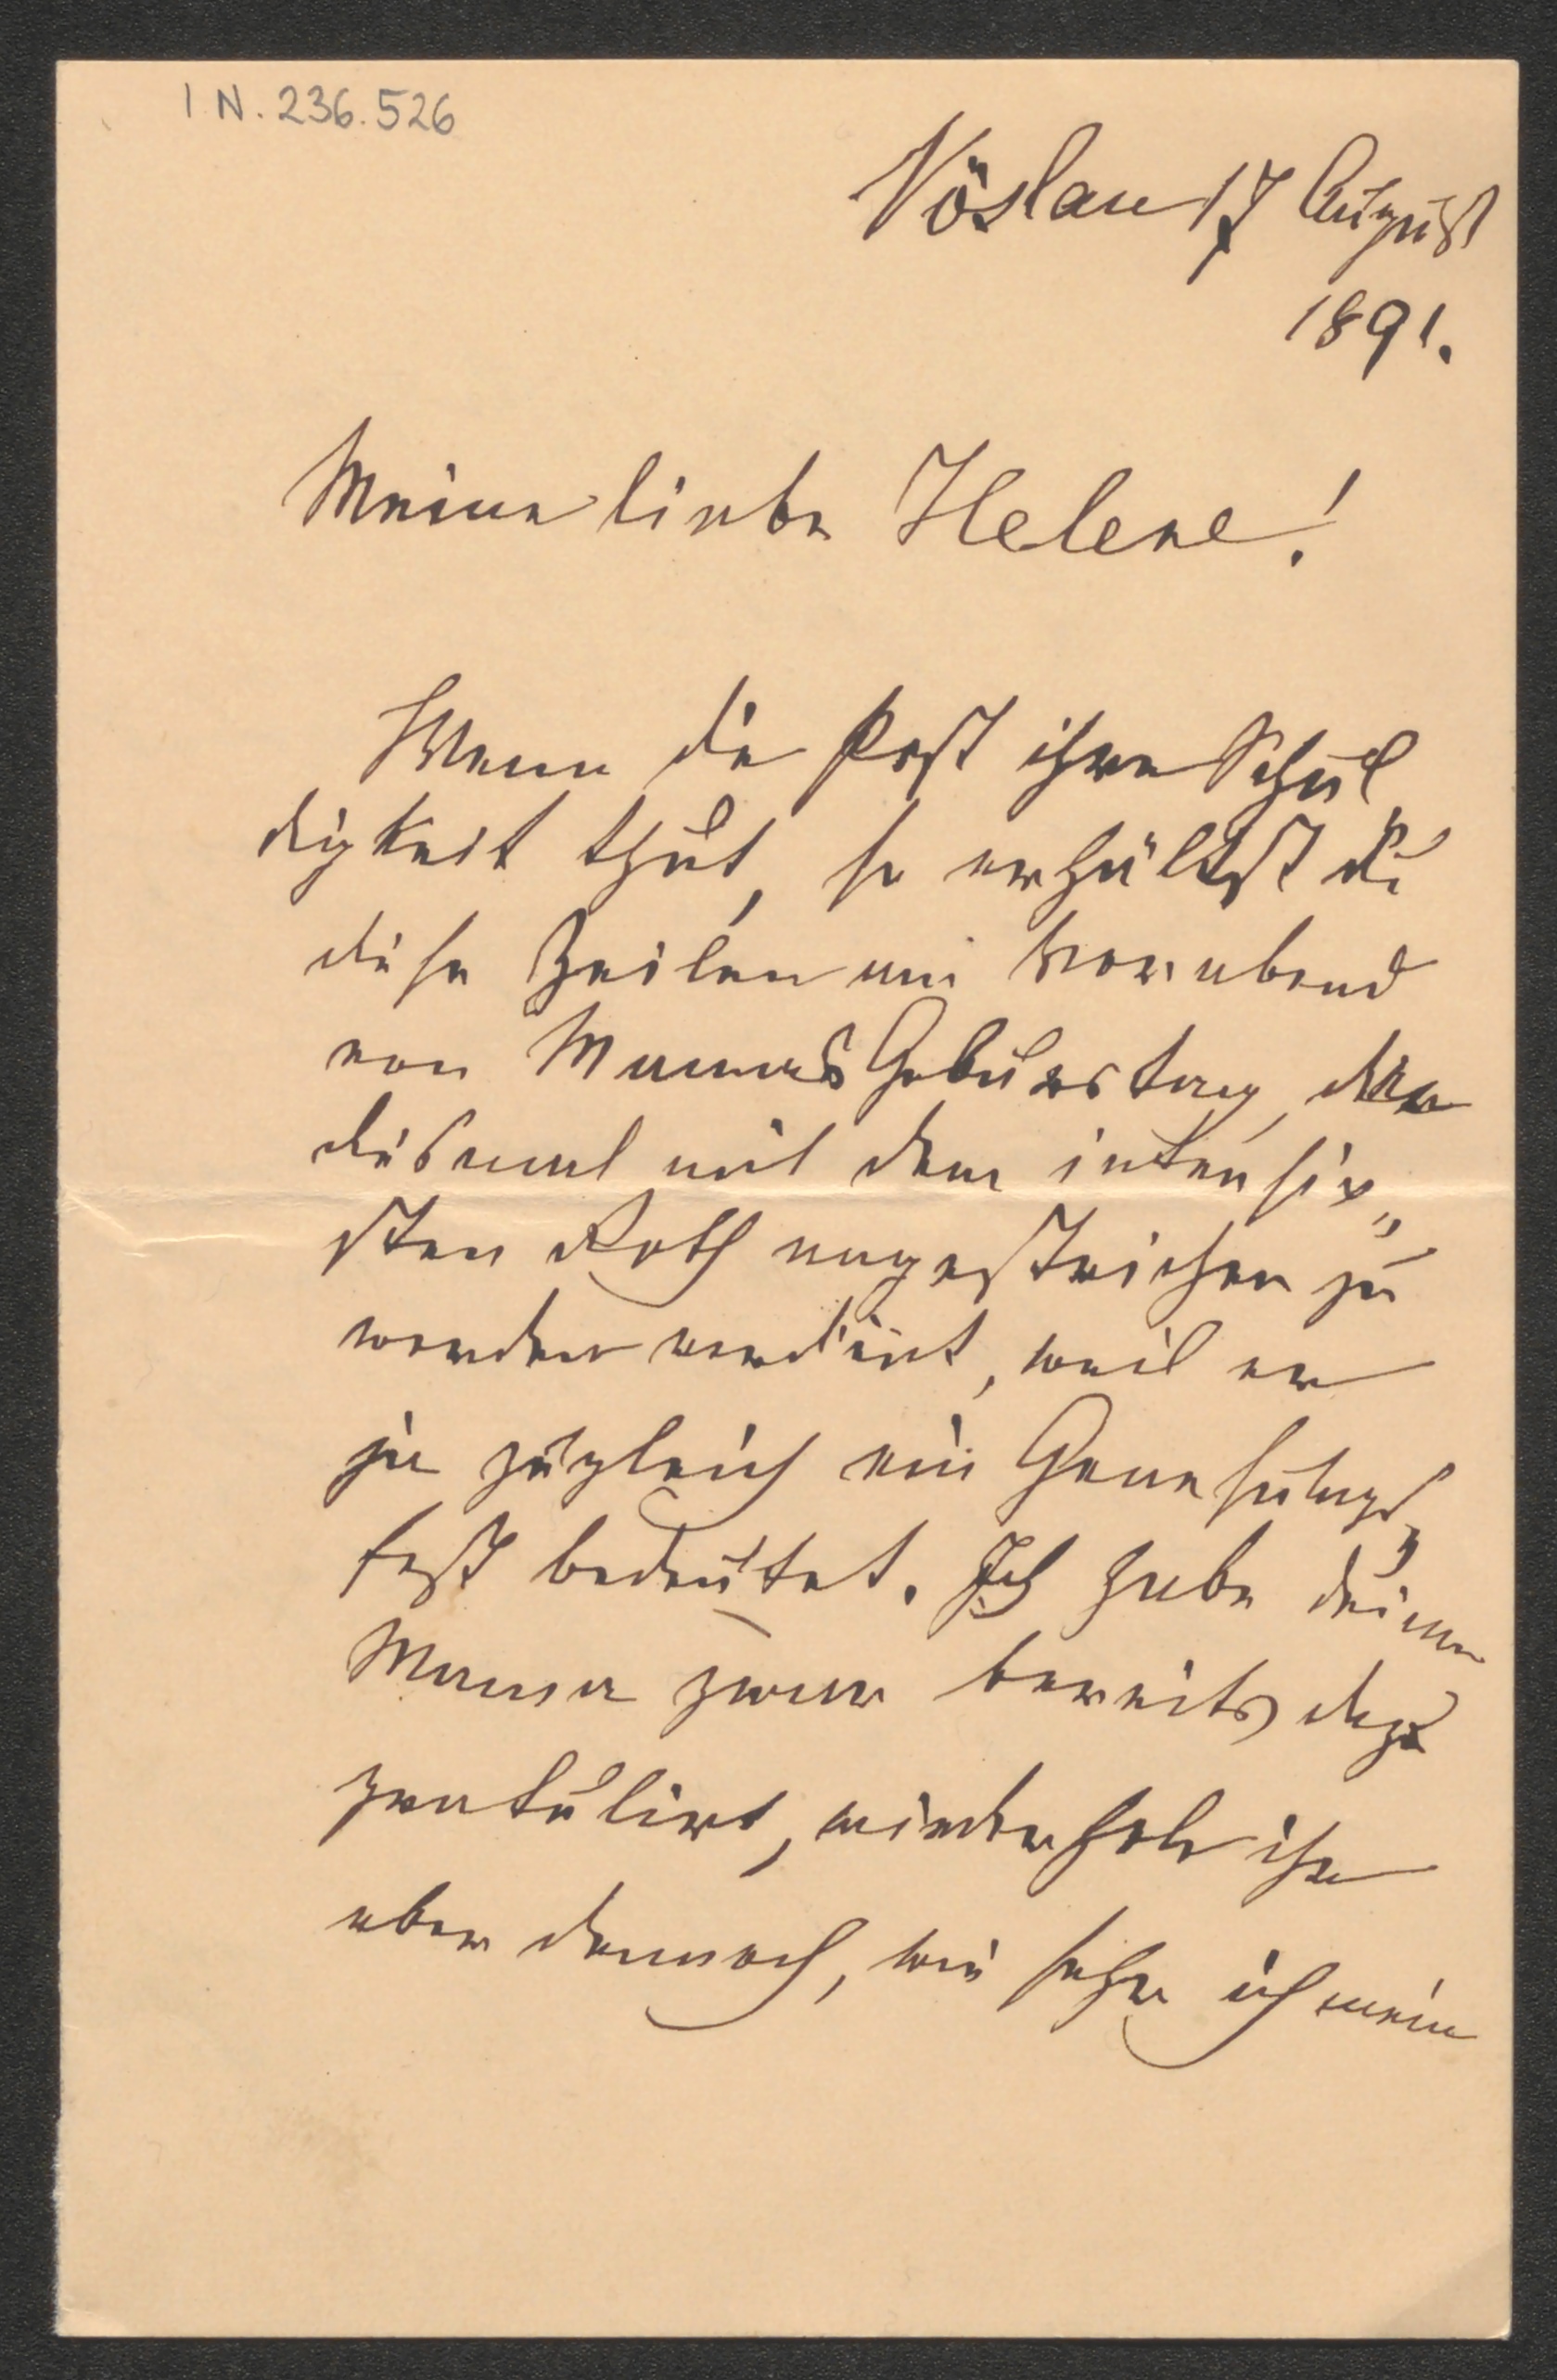 I N. 236.526
Vöslau 17 August
1891.
Meine liebe Helene!
Wenn die Post ihre Schul
digkeit thut, so erhältst du
diese Zeilen am Vorabend
von Mamas Geburstag, der
diesmal mit dem intensiv„
sten Roth angestrichen zu
werden verdient, weil er
ja zugleich ein Genesungs„
fest bedeutet. Ich habe deiner
Mama zwar bereits
gratulirt, wiederhole ihr
aber dennoch, wie sehr ich mein